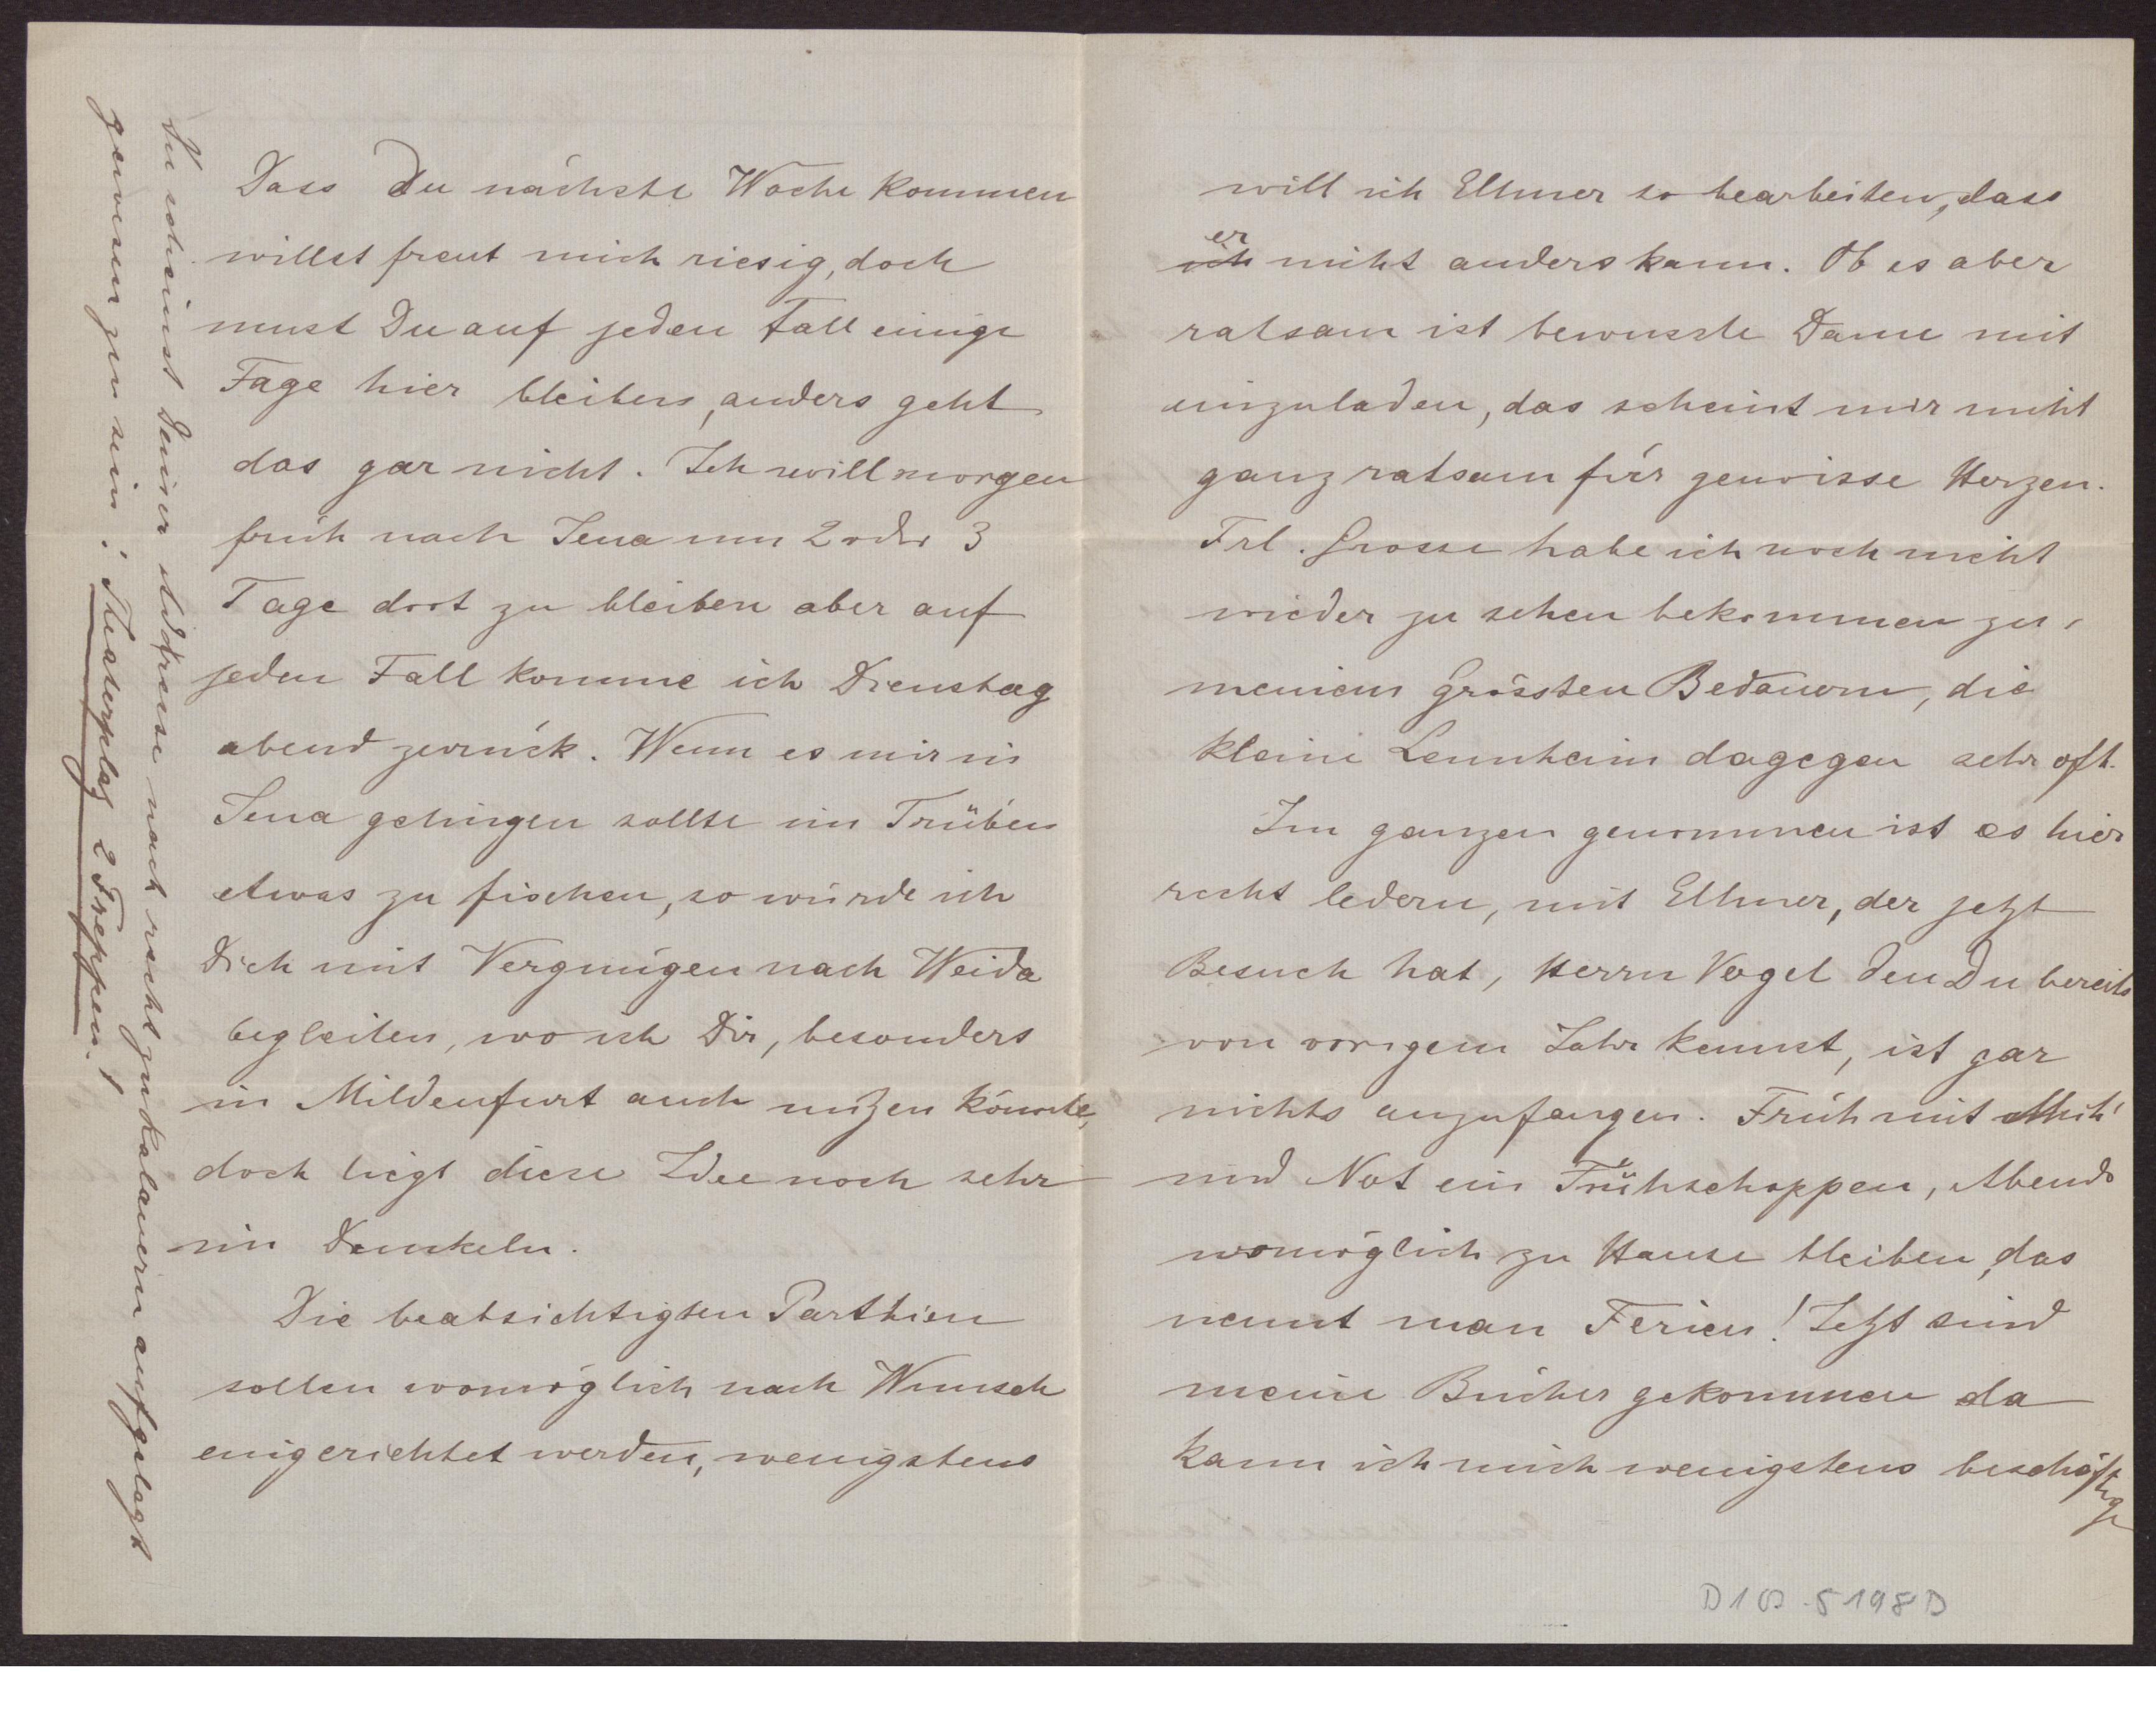 Dass Du nächste Woche kommen
willst freut mich riesig, doch
must Du auf jeden Fall einige
Tage hier bleiben, anders geht
das gar nicht. Ich will morgen
früh nach Jena um 2 oder 3
Tage dort zu bleiben aber auf
jeden Fall komme ich Dienstag
abend zurück. Wenn es mir in
Jena gelingen sollte im Trüben
etwas zu fischen, so würde ich
Dich mit Vergnügen nach Weida
begleiten, wo ich Dir, besonders
in Mildenfurt auch nützen könnte,
doch liegt diese Idee noch sehr
im Dunkeln.
Die beabsichtigten Parthien
sollen womöglich nach Wunsch
eingerichtet werden, wenigstens
Du scheinst Deiner Adresse nach recht zu kalauern aufgelegt
gewesen zu sein: Theaterplatz 2 Treppen!
will ich Ellmer so bearbeiten, dass
er
ich nicht anders kann. Ob es aber
ratsam ist bewusste Dame mit
einzuladen, das scheint mir nicht
ganz ratsam für gewisse Herzen.
Frl. Grosse habe ich noch nicht
wieder zu sehen bekommen zu
meinem grössten Bedauern, die
kleine Lennheim dagegen sehr oft.
Im ganzen genommen ist es hier
recht ledern, mit Ellmer, der jetzt
Besuch hat, Herrn Vogel den Du bereits
von vorigem Jahr kennst, ist gar
nichts anzufangen. Früh mit Müh'
und Not ein Frühschoppen, Abends
womöglich zu Hause bleiben, das
nennt man Ferien! Jetzt sind
meine Bücher gekommen da
kann ich mich wenigstens beschäftige